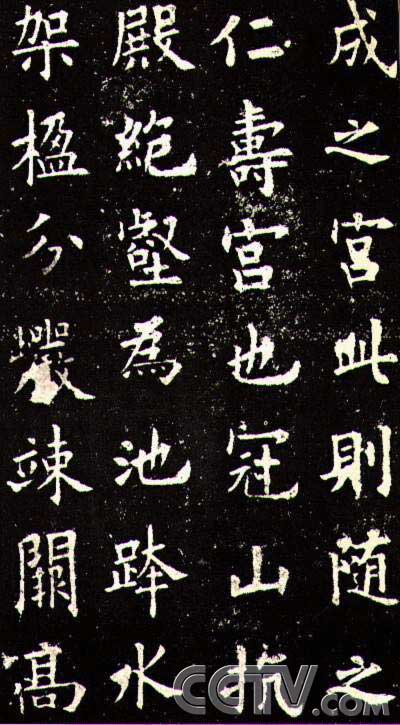 成之宮此則随之
仁壽宮也冠山抗
殿絶壑為池跨水
架楹分巖竦闕高
CCTV.com